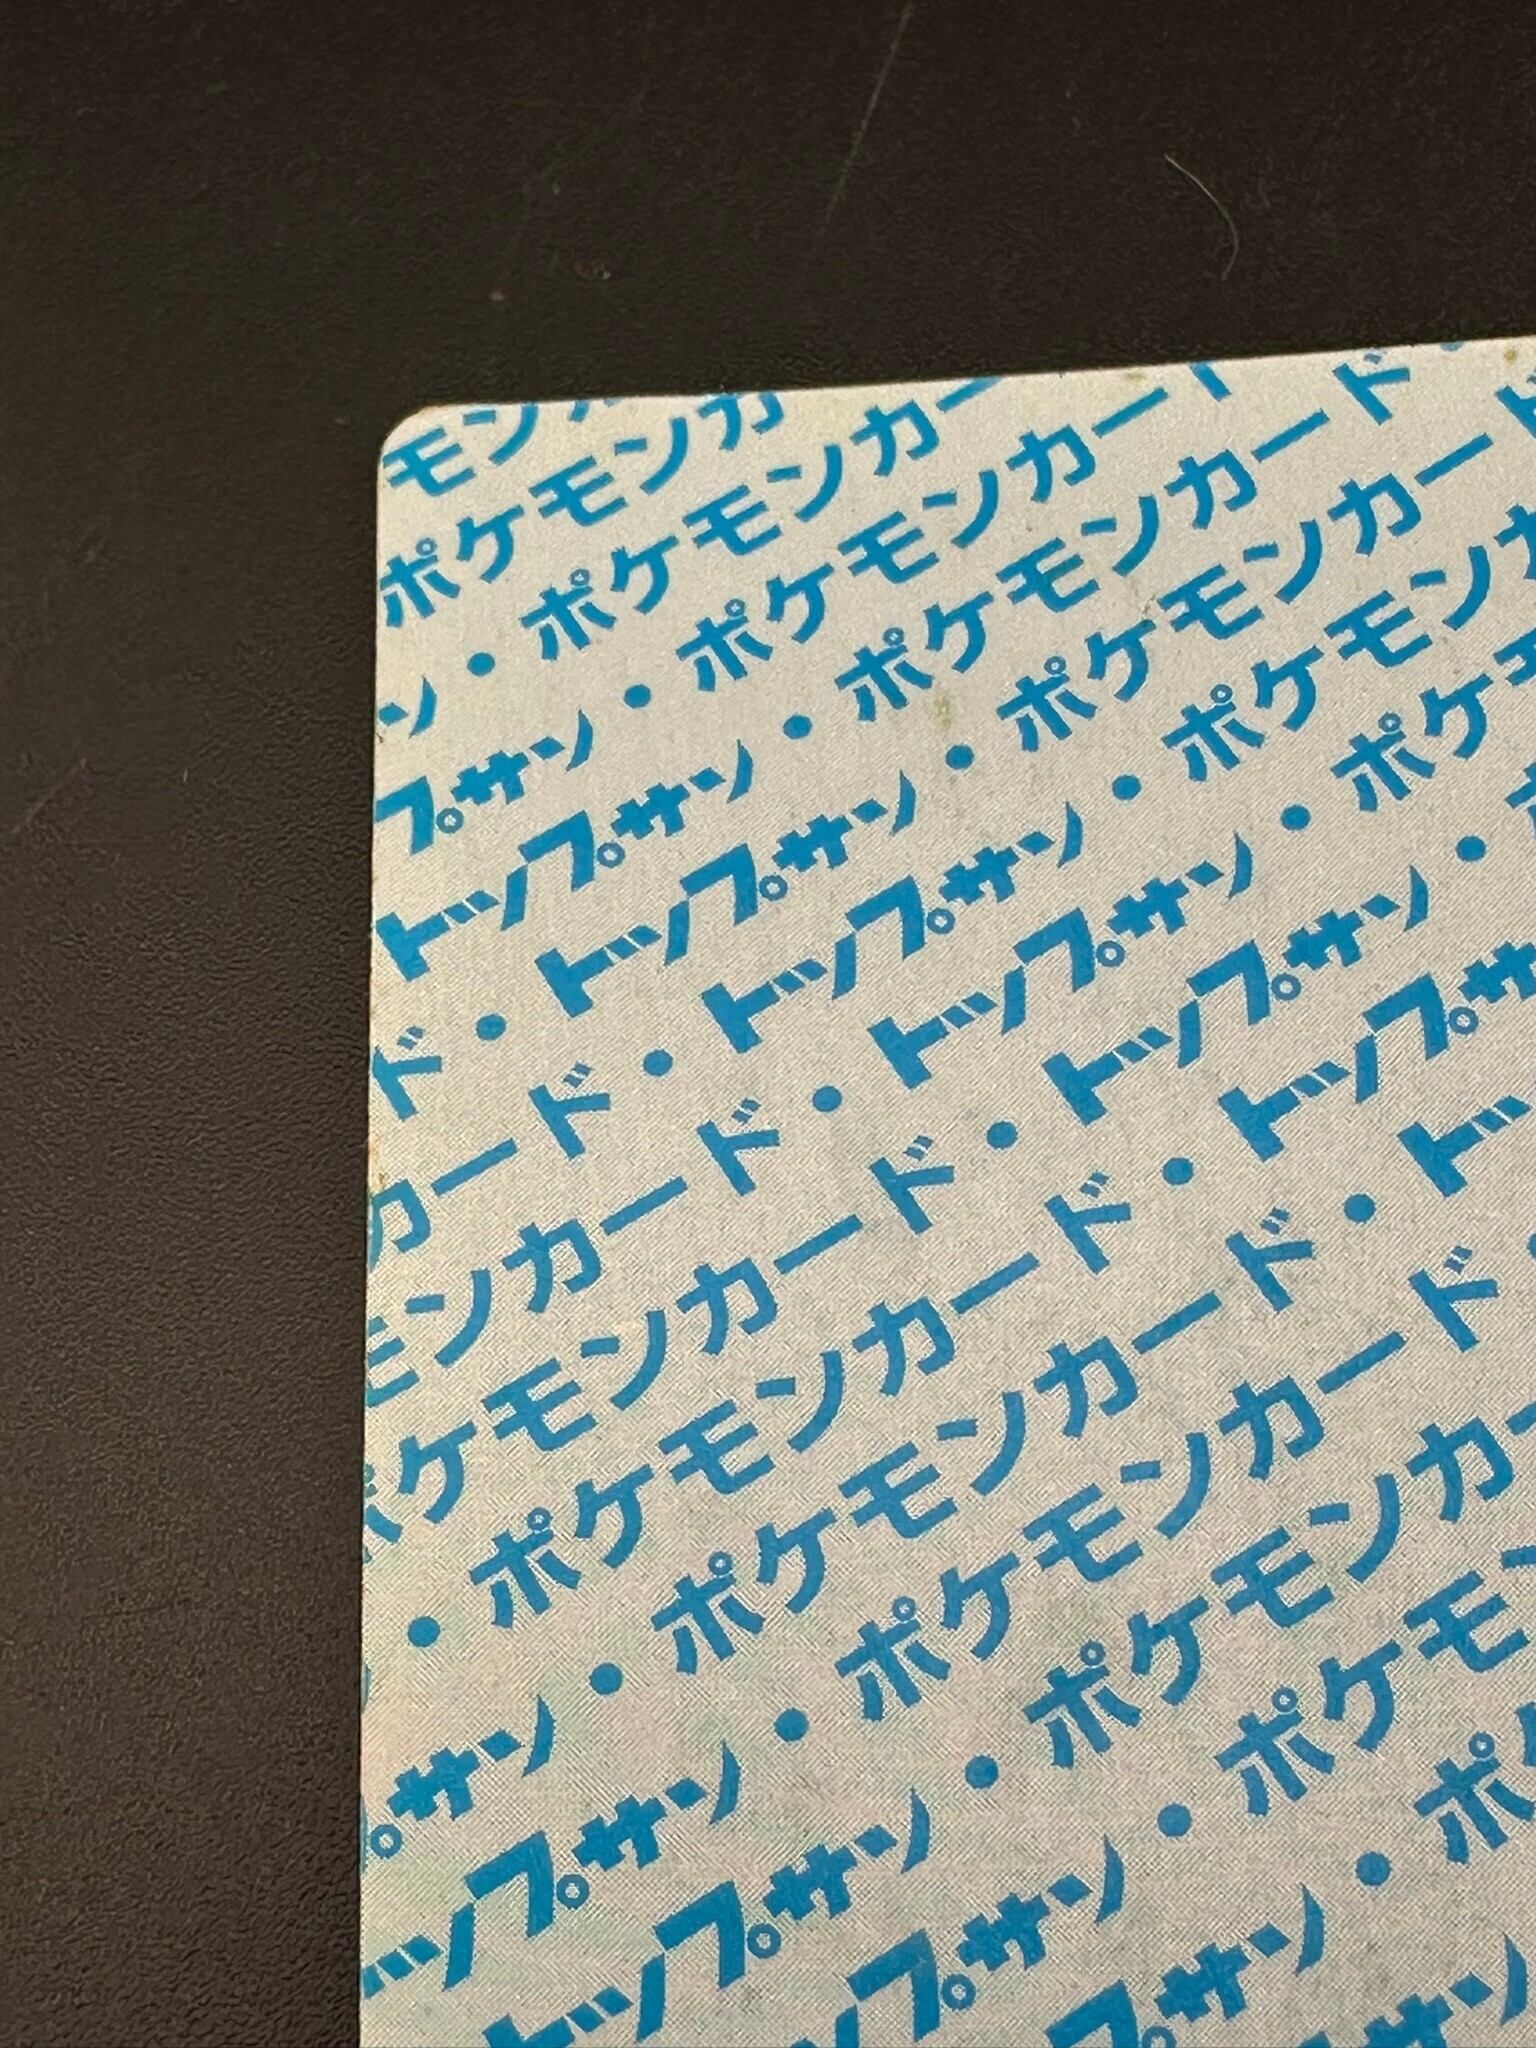 モン
ポケモンカ
ン・ポケモンカー
プサン・ポケモンカード
トップサン・ポケモンカード
ド・トップサン・ポケモンカード
カード・トップサン・ポケモンカ
モンカード・トップサン・ポケモン
ポケモンカード・トップサン・ポケ
・ポケモンカード・トップサン・
プサン・ポケモンカード・トップサ
ップサン・ポケモンカード・ト
トップサン・ポケモンカード
ップサン・ポケモンカ
プサン・ポケモ
サン・ポ